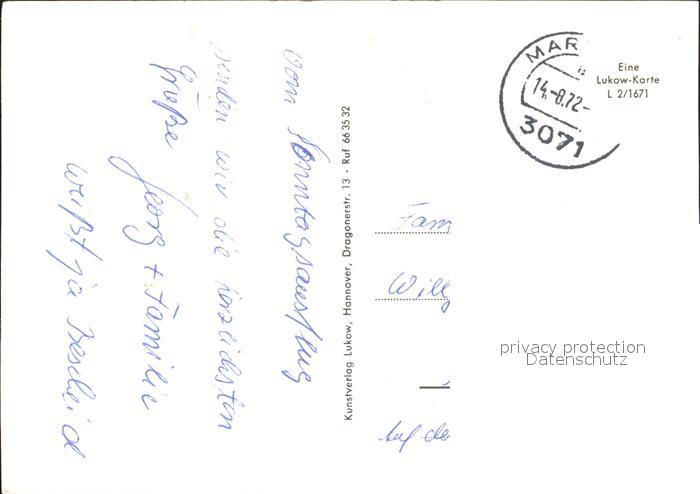 vom Sonntagsausflug
senden wir die herzlichsten
Grüße
Georg + Familie
weißt ja Bescheid
Kunstverlag Lukow, Hannover, Dragonerstr. 13 · Ruf 66 35 32
MAR
14.-8.72-
3071
Eine
Lukow-Karte
L 2/1671
Fam
Willy
Auf de
privacy protection
Datenschutz